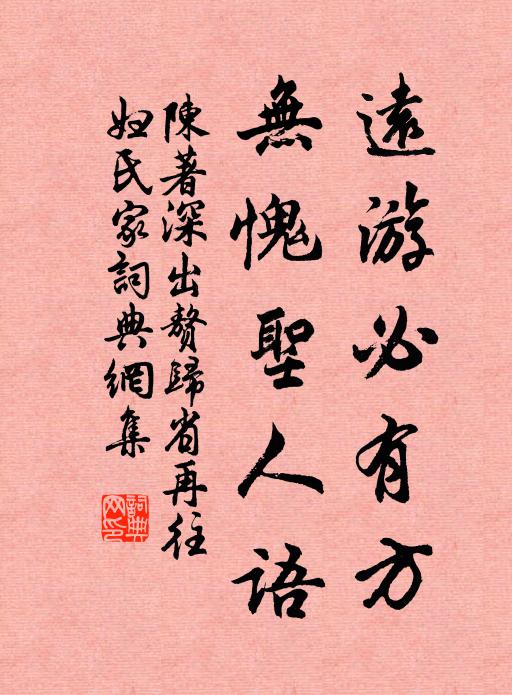 遠游必有方
無愧聖人語
陳著深出贅歸省再往
妇氏家詞典網集
詞典
网印